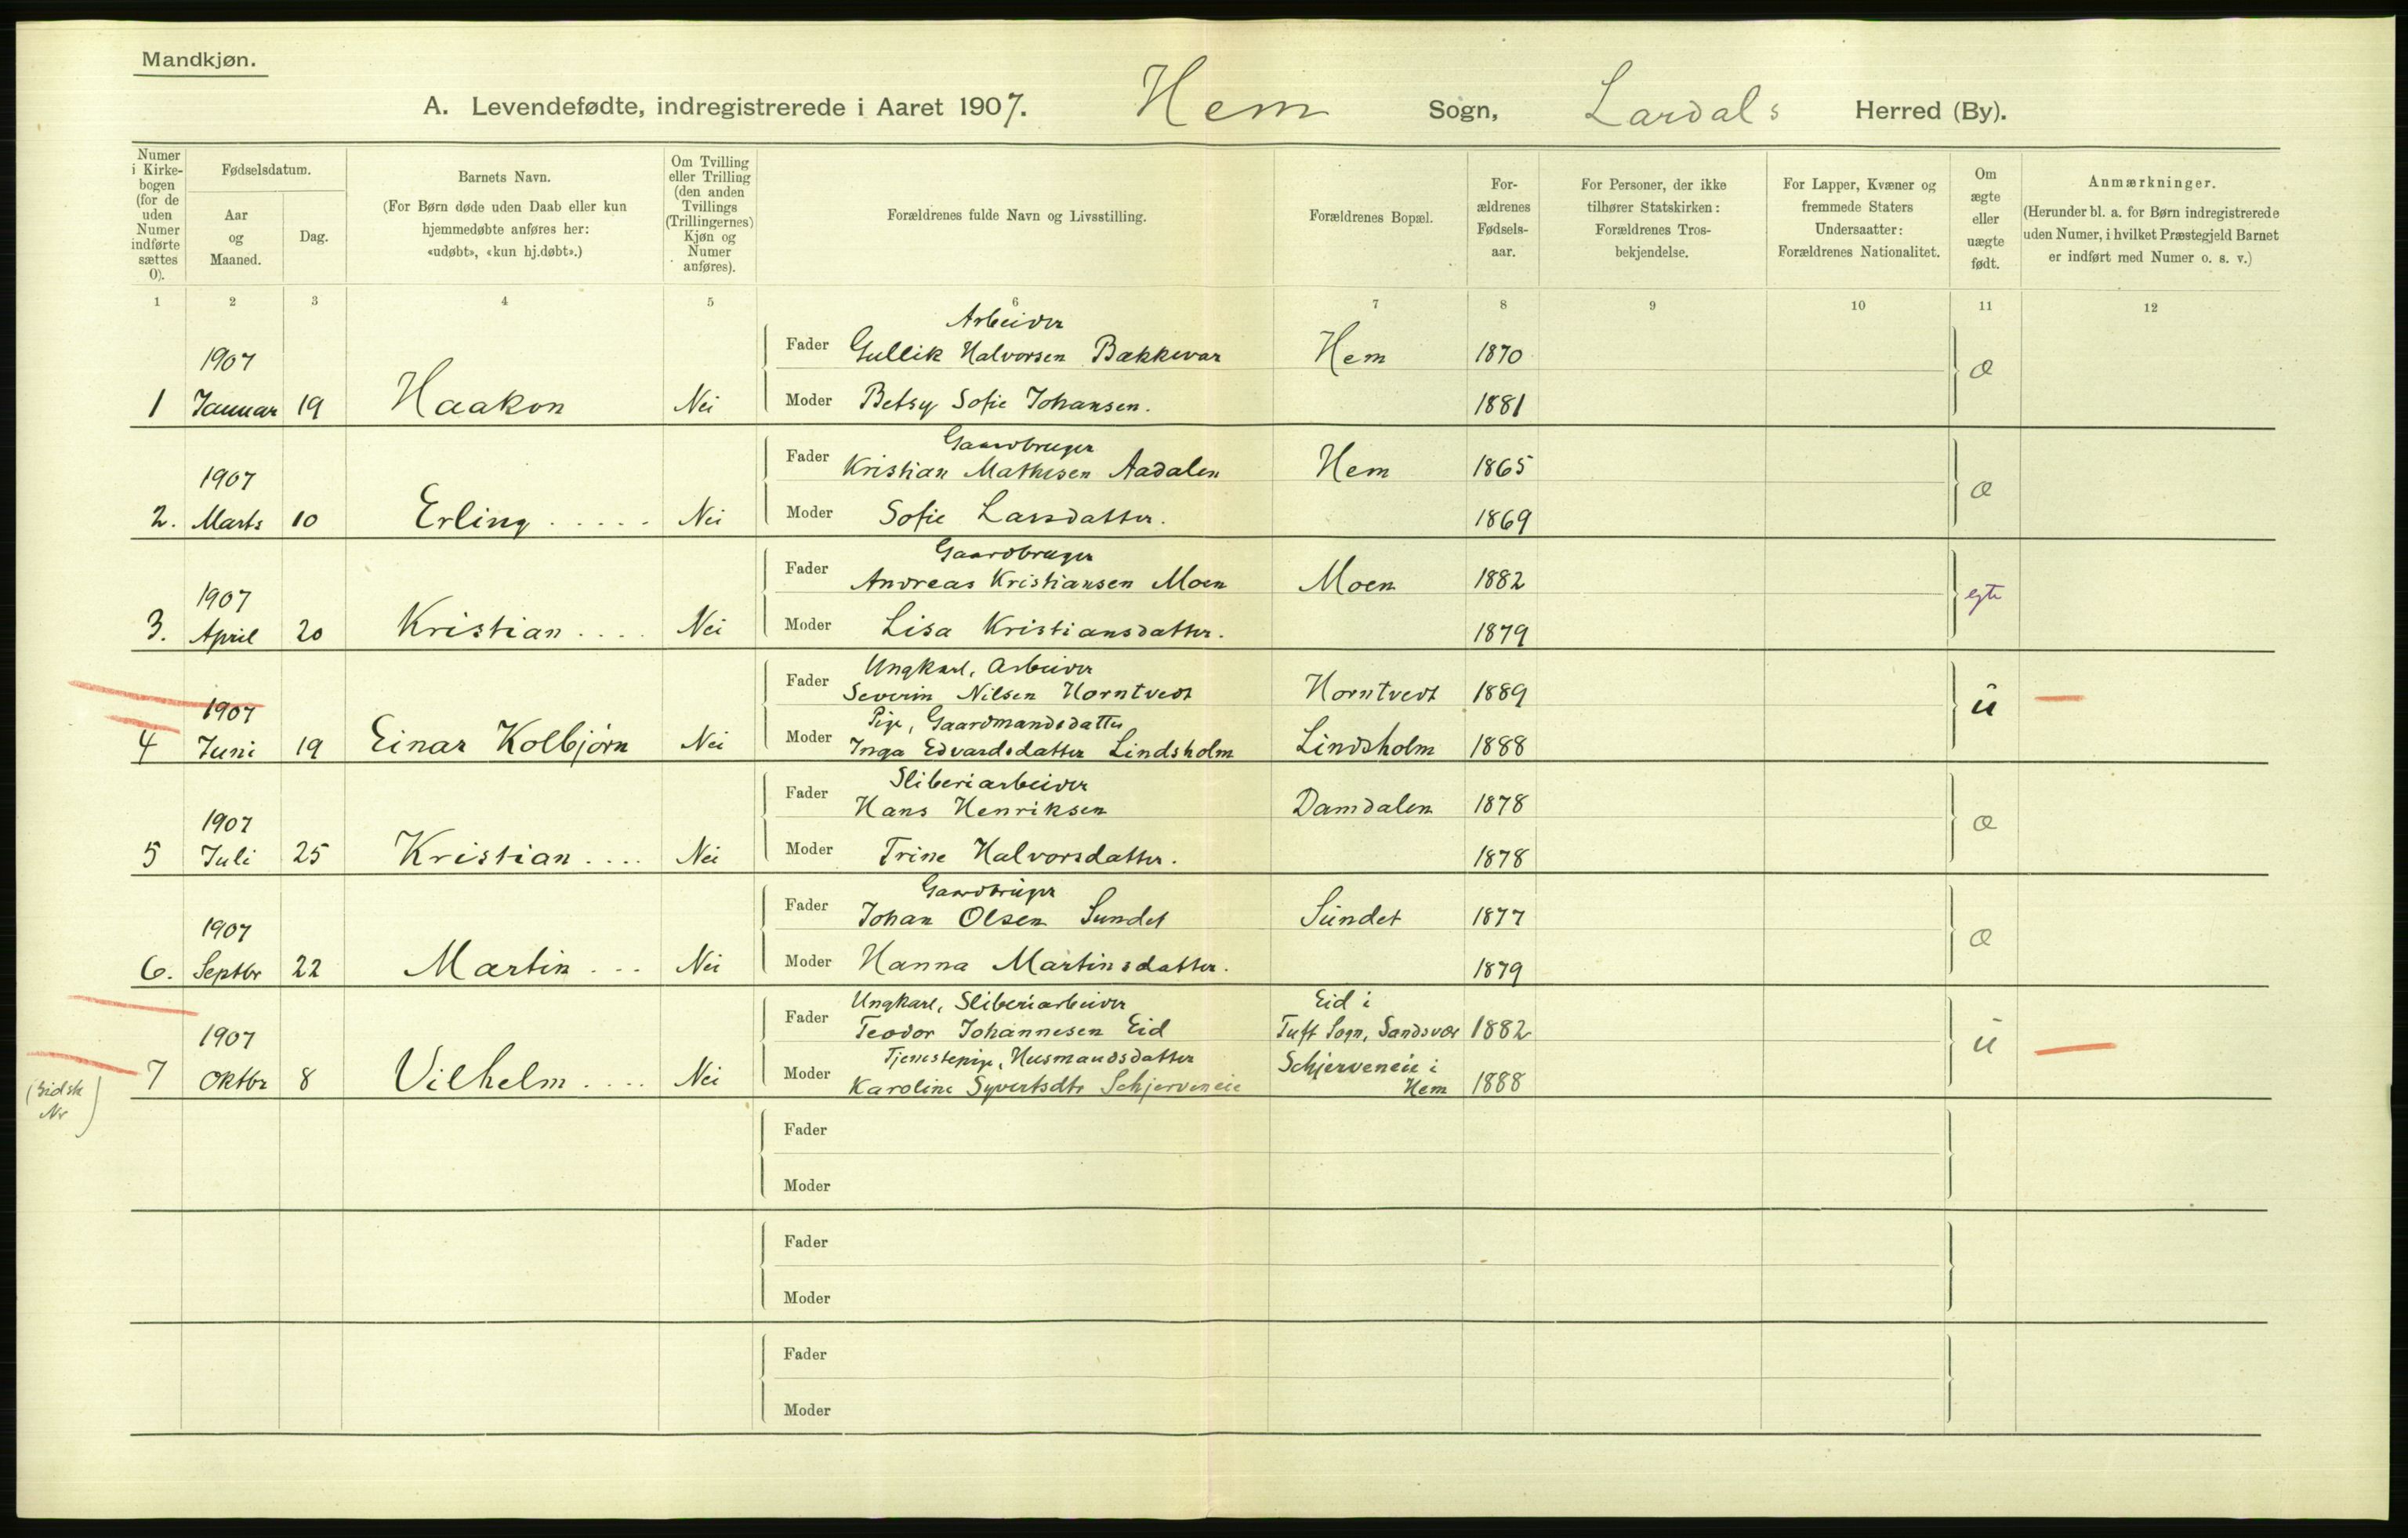 Mandkjøn.
A. Levendefødte, indregistrerede i Aaret 1907. Hem Sogn, Lardals Herred (By).
Numer i Kirkebogen (for de uden Numer indførte sættes 0).
Fødselsdatum.
Aar og Maaned.
Dag.
Barnets Navn.
(For Børn døde uden Daab eller kun hjemmedøbte anføres her: «udøbt», «kun hj.døbt».)
Om Tvilling eller Trilling (den anden Tvillings (Trillingernes) Kjøn og Numer anføres).
Forældrenes fulde Navn og Livsstilling.
Forældrenes Bopæl.
Forældrenes Fødselsaar.
For Personer, der ikke tilhører Statskirken: Forældrenes Trosbekjendelse.
For Lapper, Kvæner og fremmede Staters Undersaatter: Forældrenes Nationalitet.
Om ægte eller uægte født.
Anmærkninger.
(Herunder bl. a. for Børn indregistrerede uden Numer, i hvilket Præstegjeld Barnet er indført med Numer o. s. v.)
1 2 3 4 5 6 7 8 9 10 11 12
Arbeider
1907 Fader Gullik Halvorsen Bakkevar Hem 1870 æ
1 Januar 19 Haakon Nei Moder Betsy Sofie Johansen. 1881
Gaardbruger
1907 Fader Kristian Mathisen Aadalen Hem 1865 æ
2. Marts 10 Erling ..... Nei Moder Sofie Larsdatter. 1869
Gaardbruger
1907 Fader Andreas Kristiansen Moen Moen 1882 egte
3. April 20 Kristian .... Nei Moder Lisa Kristiansdatter. 1879
Ungkarl, Arbeider
1907 Fader Severin Nilsen Horntvedt Horntvedt 1889 u
Pige, Gaardmandsdatter
4 Juni 19 Einar Kolbjørn Nei Moder Inga Edvardsdatter Lindsholm Lindsholm 1888
Sliberiarbeider
1907 Fader Hans Henriksen Damdalen 1878 æ
5 Juli 25 Kristian .... Nei Moder Trine Halvorsdatter. 1878
Gaardbruger
1907 Fader Johan Olsen Sundet Sundet 1877 æ
6. Septbr 22 Martin ... Nei Moder Hanna Martinsdatter. 1879
Ungkarl, Sliberiarbeider Eid i
1907 Fader Teodor Johannesen Eid Tuft Sogn, Sandsvær 1882 u
Tjenestepige, Husmandsdatter Schjerveneie i
7 Oktbr 8 Vilhelm .... Nei Moder Karoline Syvertsdtr Schjerveneie Hem 1888
(sidste
Nr)
Fader
Moder
Fader
Moder
Fader
Moder